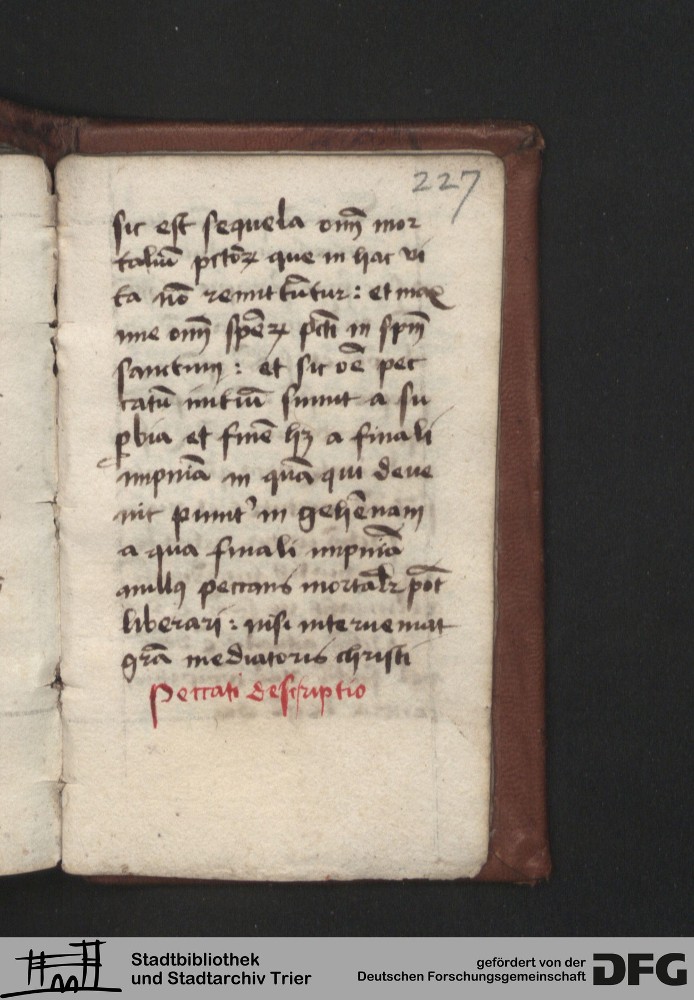 227
sic est sequela om̄ mor
taliū pctōꝝ que in hac vi
ta nō remittūtur : et max
ime om̄ spērꝝ pcti in spm̄
sanctum : et sic oē pec
catū initiū sumit a su
ꝑbia et finē hꝫ a finali
impniā in quā qui deve
nit punit᷑ in gehēnam
a qua finali impniā
nullꝰ peccans mortalr̄ pōt
liberari : nisi interueniat
grā mediatoris christi
Peccati descriptio
Stadtbibliothek
und Stadtarchiv Trier
gefördert von der
Deutschen Forschungsgemeinschaft
DFG